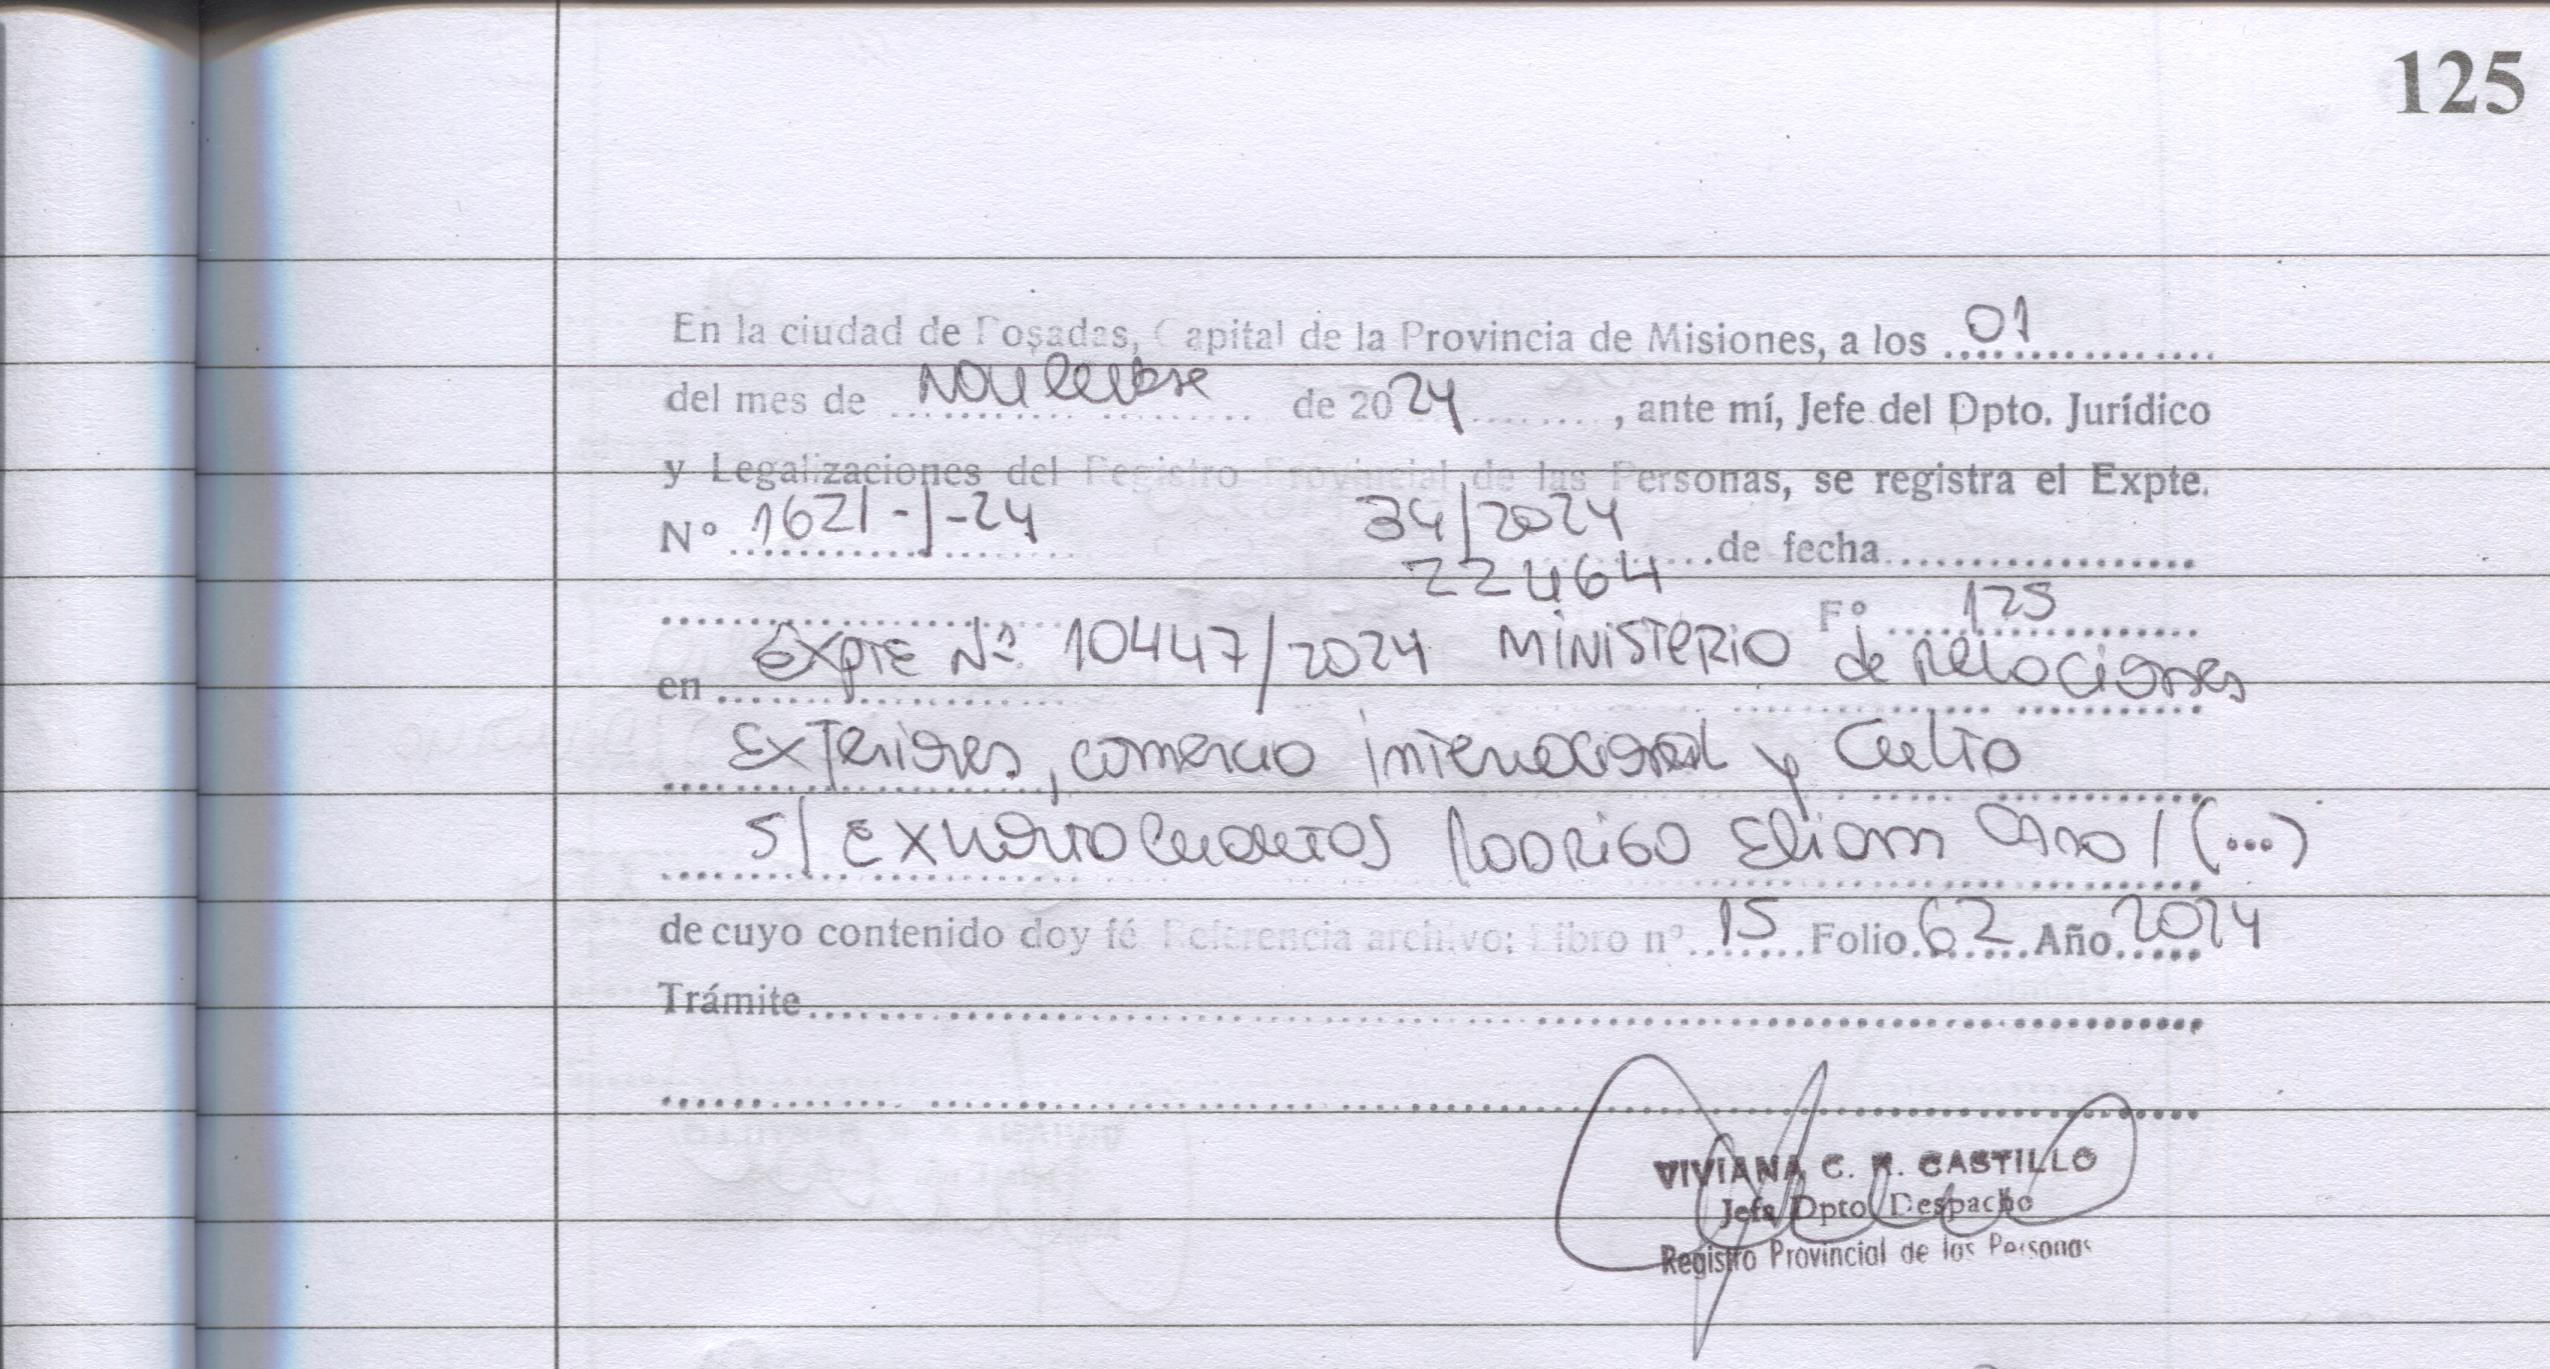 125
En la ciudad de Posadas, Capital de la Provincia de Misiones, a los 01
del mes de Noviembre de 2024, ante mí, Jefe del Dpto. Jurídico
y Legalizaciones del Registro Provincial de las Personas, se registra el Expte.
Nº 1621-J-24 34/2024 de fecha
22464
Fº 125
en Expte Nº 10447/2024 Ministerio de Relaciones
Exteriores, comercio internacional y Culto
S/ Rodrigo Eliam / (...)
de cuyo contenido doy fé Referencia archivo: Libro nº 15 Folio 62 Año 2024
Trámite
VIVIANA C. R. CASTILLO
Jefa Dpto Despacho
Registro Provincial de las Personas